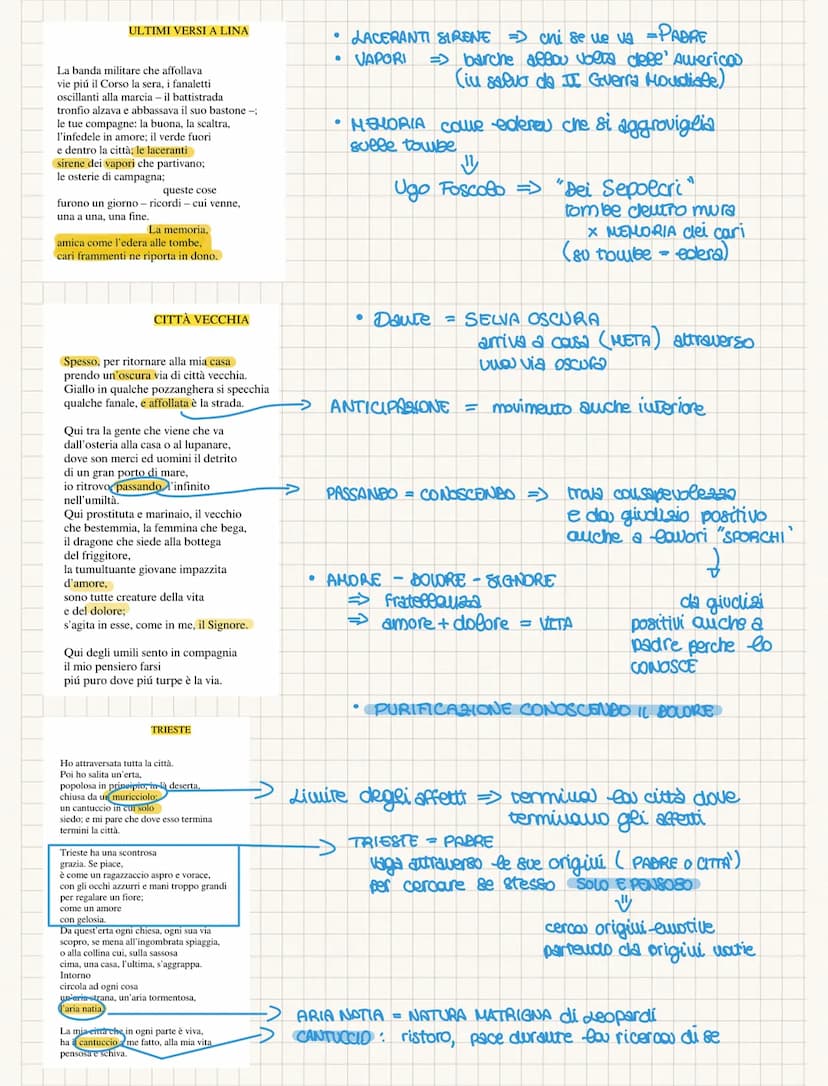 ULTIMI VERSI A LINA
La banda militare che affollava
vie piú il Corso la sera, i fanaletti
oscillanti alla marcia – il battistrada
tronfio alzava e abbassava il suo bastone –;
le tue compagne: la buona, la scaltra,
l'infedele in amore; il verde fuori
e dentro la città; le laceranti
sirene dei vapori che partivano;
le osterie di campagna;
queste cose
furono un giorno – ricordi – cui venne,
una a una, una fine.
La memoria,
amica come l'edera alle tombe,
cari frammenti ne riporta in dono.
• LACERANTI SIRENE => chi se ne va = PADRE
• VAPORI => barche alla volta dell' America
(in salvo da II Guerra Mondiale)
• MEMORIA come edera che si aggroviglia
sulle tombe
Ugo Foscolo => "Dei Sepolcri"
tombe dentro mura
x MEMORIA dei cari
(su tombe = edera)
CITTÀ VECCHIA
Spesso, per ritornare alla mia casa
prendo un'oscura via di città vecchia.
Giallo in qualche pozzanghera si specchia
qualche fanale, e affollata è la strada.
Qui tra la gente che viene che va
dall'osteria alla casa o al lupanare,
dove son merci ed uomini il detrito
di un gran porto di mare,
io ritrovo, passando, l'infinito
nell'umiltà.
Qui prostituta e marinaio, il vecchio
che bestemmia, la femmina che bega,
il dragone che siede alla bottega
del friggitore,
la tumultuante giovane impazzita
d'amore,
sono tutte creature della vita
e del dolore;
s'agita in esse, come in me, il Signore.
Qui degli umili sento in compagnia
il mio pensiero farsi
piú puro dove piú turpe è la via.
• Dante = SELVA OSCURA
arriva a casa (META) attraverso
una via oscura
ANTICIPAZIONE = movimento anche interiore
PASSANDO = CONOSCENDO => trova consapevolezza
e da giudizio positivo
anche a lavori "SPORCHI"
da giudizi
positivi anche a
padre perche lo
CONOSCE
• AMORE - DOLORE - SIGNORE
=> fratellanza
=> amore + dolore = VITA
• PURIFICAZIONE CONOSCENDO IL DOLORE
TRIESTE
Ho attraversata tutta la città.
Poi ho salita un'erta,
popolosa in principio, in là deserta,
chiusa da un muricciolo:
un cantuccio in cui solo
siedo; e mi pare che dove esso termina
termini la città.
Trieste ha una scontrosa
grazia. Se piace,
è come un ragazzaccio aspro e vorace,
con gli occhi azzurri e mani troppo grandi
per regalare un fiore;
come un amore
con gelosia.
Da quest'erta ogni chiesa, ogni sua via
scopro, se mena all'ingombrata spiaggia,
o alla collina cui, sulla sassosa
cima, una casa, l'ultima, s'aggrappa.
Intorno
circola ad ogni cosa
un'aria strana, un'aria tormentosa,
l'aria natia.
La mia città che in ogni parte è viva,
ha il cantuccio a me fatto, alla mia vita
pensosa e schiva.
Limite degli affetti => termina la città dove
terminano gli affetti
TRIESTE = PADRE
vaga attraverso le sue origini (PADRE o CITTÀ)
per cercare se stesso SOLO E PENSOSO
cerca origini emotive
partendo da origini natie
ARIA NATIA = NATURA MATRIGNA di Leopardi
CANTUCCIO: ristoro, pace durante la ricerca di se